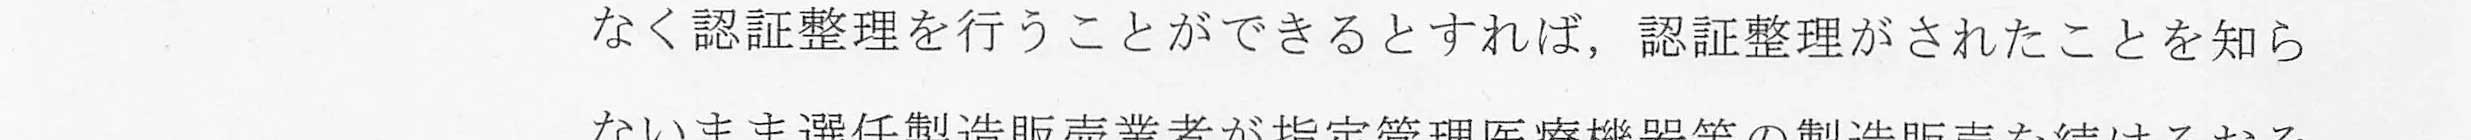 なく認証整理を行うことができるとすれば，認証整理がされたことを知ら
ないまま選任製造販売業者が指定管理医療機器等の製造販売を続けるおそ